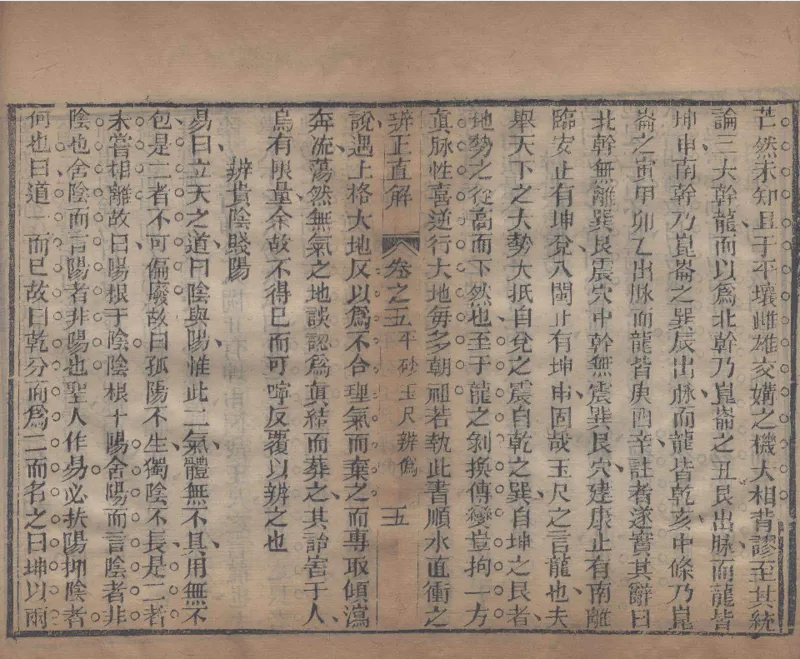 茫然未知且于平壤雌雄交媾之機大相背謬至其統
論三大幹龍而以爲北幹乃崑崙之丑艮出脉而龍皆
坤申南幹乃崑崙之巽辰出脉而龍皆乾亥中條乃崑
崙之寅甲卯乙出脉而龍皆庚酉辛註者遂實其辭曰
北幹無離巽艮震穴中幹無震巽艮穴建康止有南離
臨安止有坤兌八閩止有坤申固哉玉尺之言龍也夫
舉天下之大勢大抵自兌之震自乾之巽自坤之艮者
地勢之從高而下然也至于龍之剝換傳變豈拘一方
眞脉性喜逆行大地每多朝祖若執此書順水直衝之
辨正直解 卷之五 平砂玉尺辨僞 五
說遇上格大地反以爲不合理氣而棄之而專取傾瀉
奔流蕩然無氣之地誤認爲眞結而葬之其詒害于人
烏有限量余故不得已而可嚀反覆以辨之也
辨貴陰賤陽
易曰立天之道曰陰與陽惟此二氣體無不具用無不
包是二者不可偏廢故曰孤陽不生獨陰不長是二者
未嘗相離故曰陽根于陰陰根于陽舍陽而言陰者非
陰也舍陰而言陽者非陽也聖人作易必扶陽抑陰者
何也曰道一而已故曰乾分而爲二而名之曰坤以兩